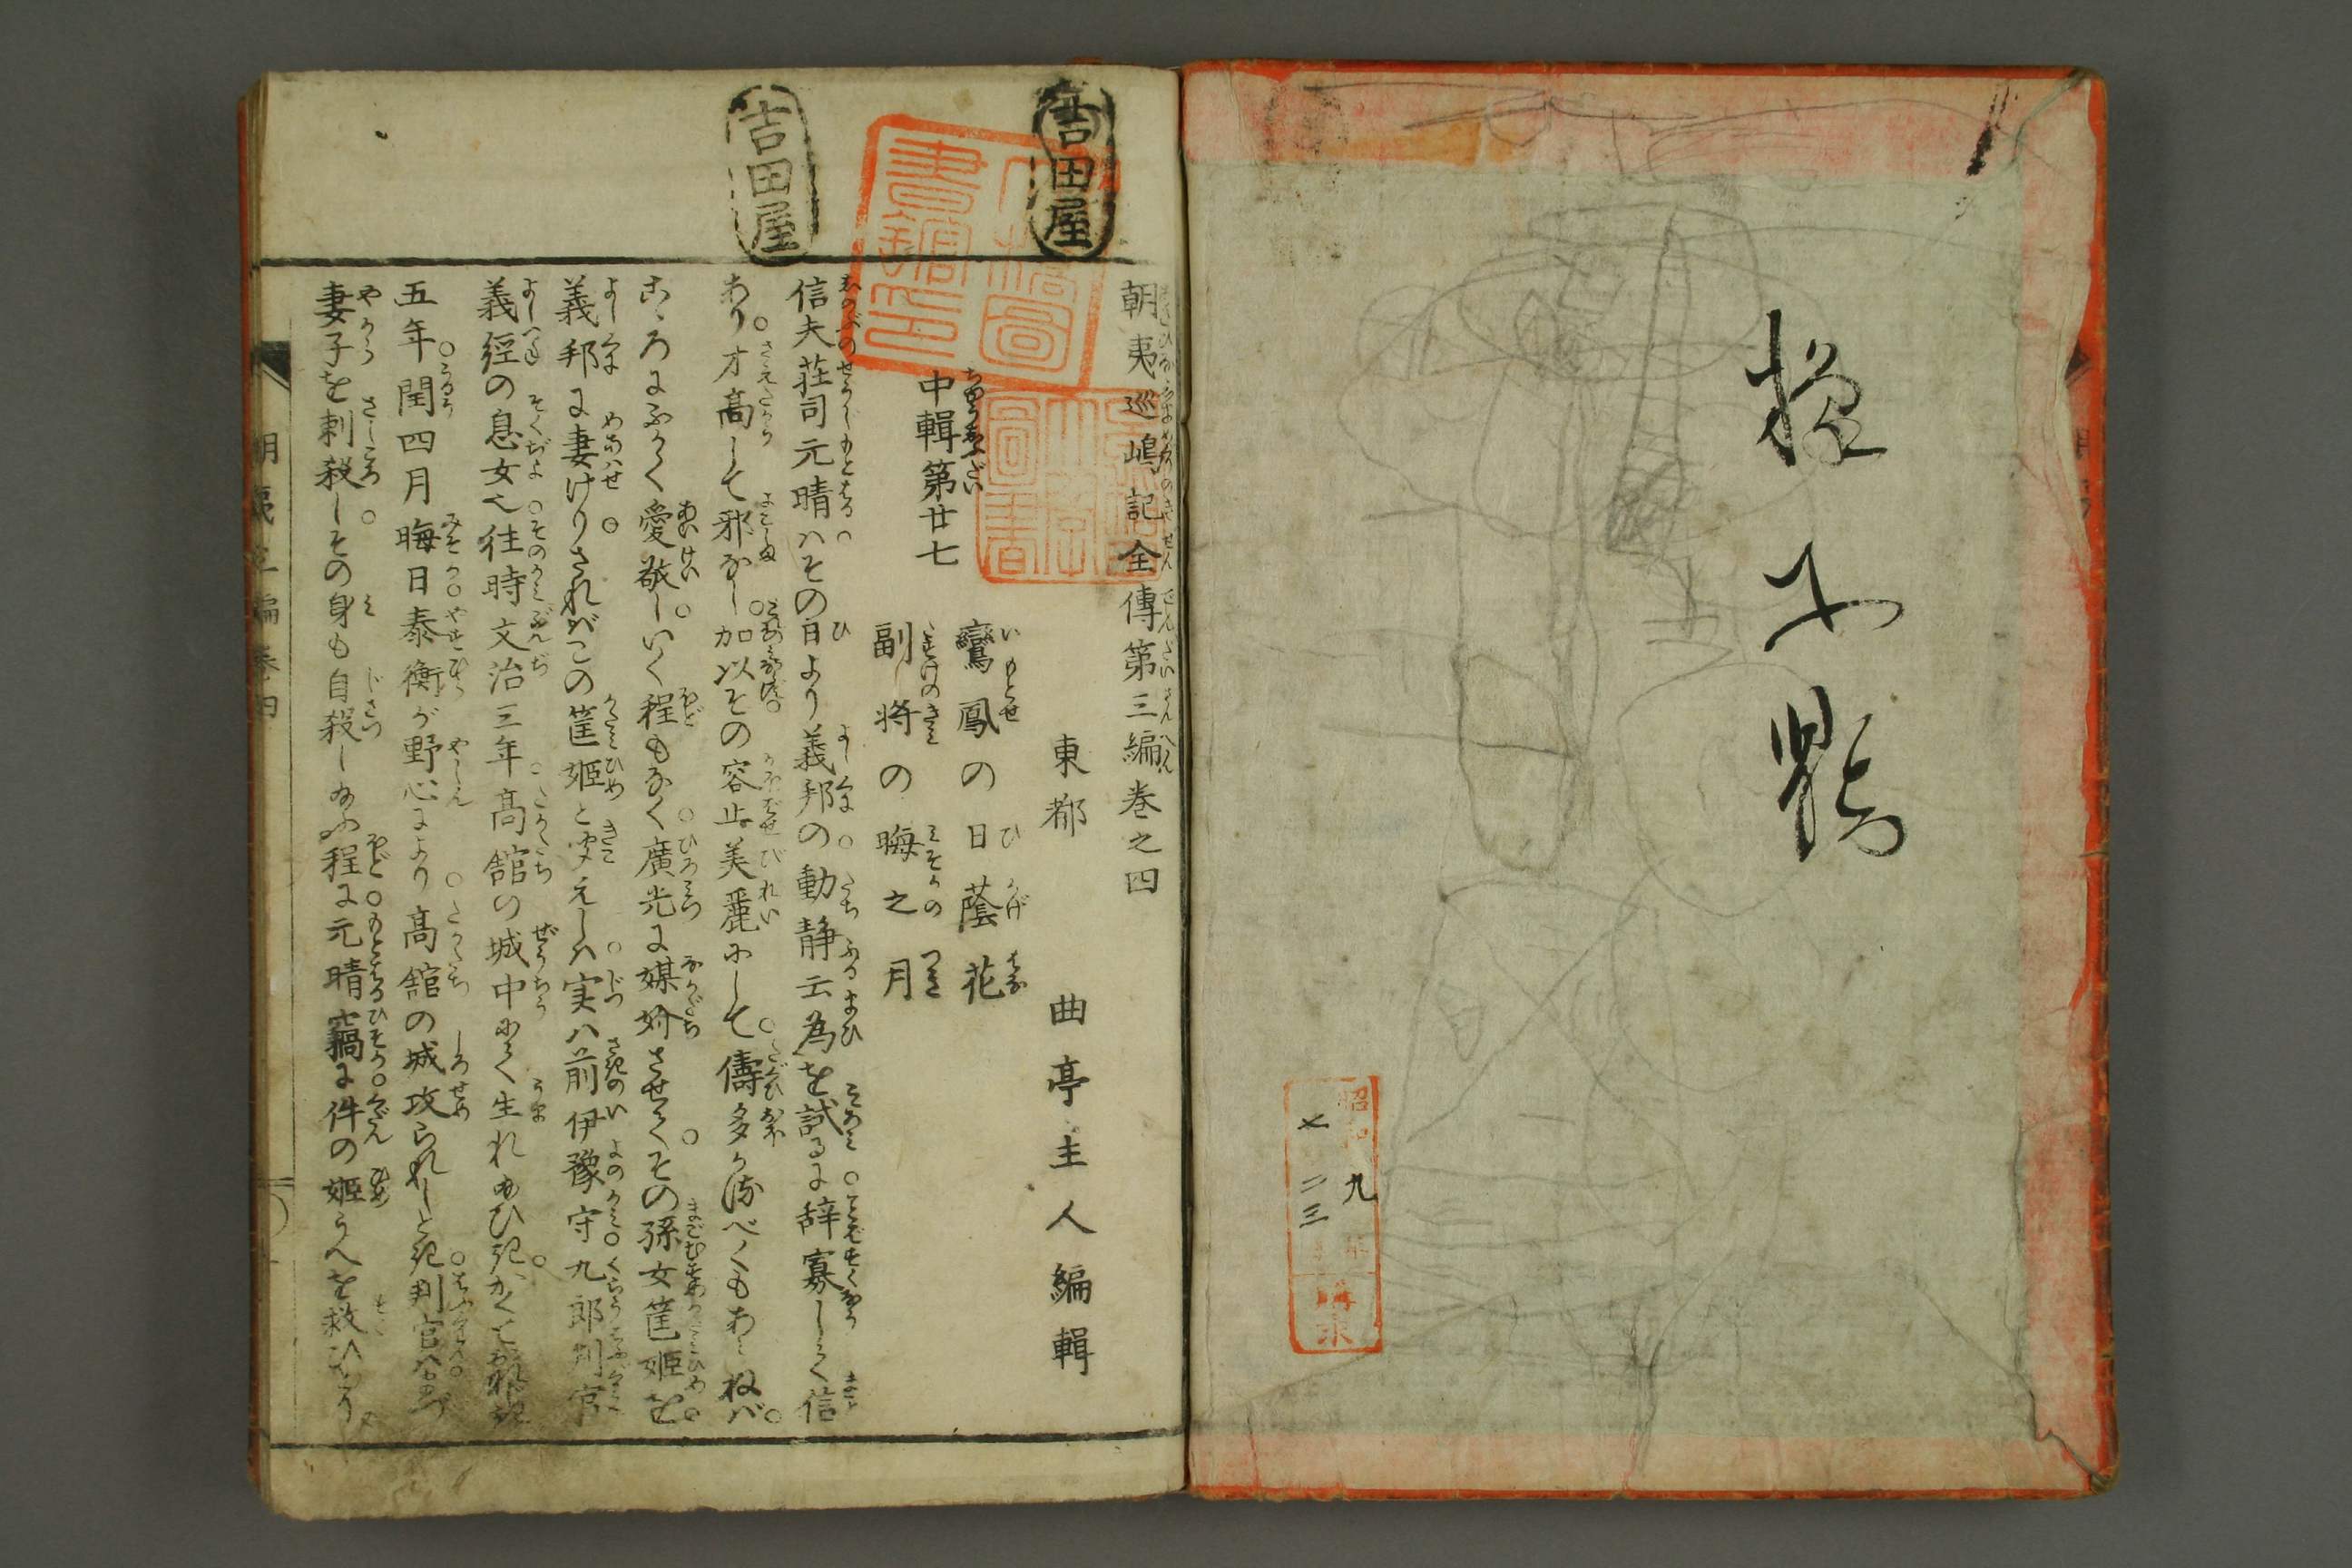 吉田屋
吉田屋
朝夷巡嶋記全傳第三編巻之四
東都 曲亭主人編輯
中輯第廿七
鸞鳳の日蔭花
副将の晦之月
信夫荘司元晴ハその日より義邦の動静云為を試るに辞寡しく信
あり才高して邪なし加以その容止美麗にして儔多かるべくもあらねバ
こゝろにふかく愛敬しいく程もなく廣光に媒妁させてその孫女筐姫を
義邦に妻けりされバこの筐姫と聞えしハ実ハ前伊豫守九郎判官
義經の息女也往時文治三年高舘の城中にて生れ給ひき
五年閏四月晦日泰衡が野心により高舘の城攻られしとき判官
妻子を刺殺しその身も自殺し給ふ程に元晴竊に件の姫うへを救
昭和
九
七
二三
購求